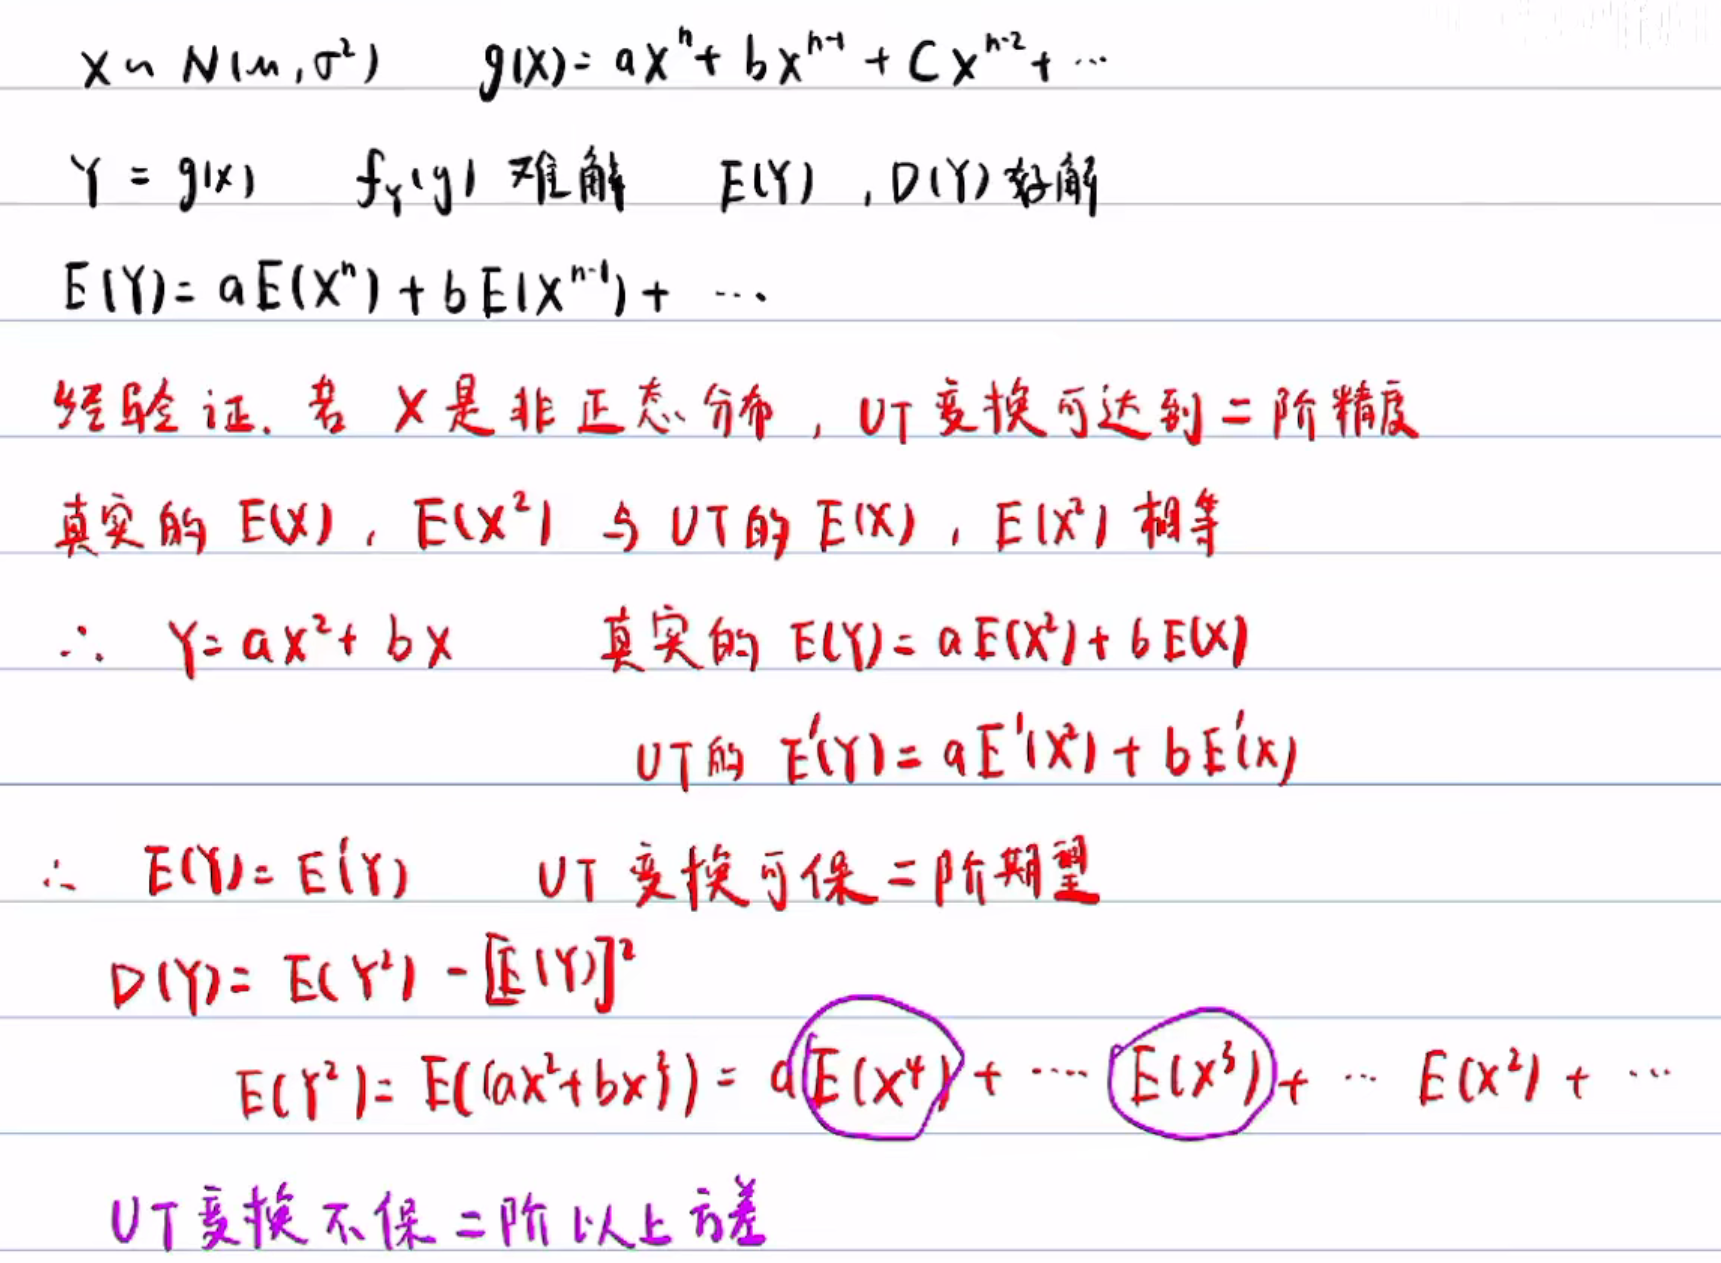 X ~ N(μ, σ²)  g(x) = aXⁿ + bXⁿ⁻¹ + CXⁿ⁻² + ⋯
Y = g(x)  f_Y(y) 难解  E(Y), D(Y) 好解
E(Y) = aE(Xⁿ) + bE(Xⁿ⁻¹) + ⋯
经验证. 若 X是非正态分布, UT变换可达到二阶精度
真实的 E(X), E(X²) 与 UT的 E(X), E(X²) 相等
∴ Y = aX² + bX  真实的 E(Y) = aE(X²) + bE(X)
UT的 E′(Y) = aE′(X²) + bE′(X)
∴ E(Y) = E′(Y)  UT变换可保二阶期望
D(Y) = E(Y²) - [E(Y)]²
E(Y²) = E((ax²+bx)²) = aE(X⁴) + ⋯ E(X³) + ⋯ E(X²) + ⋯
UT变换不保二阶以上方差